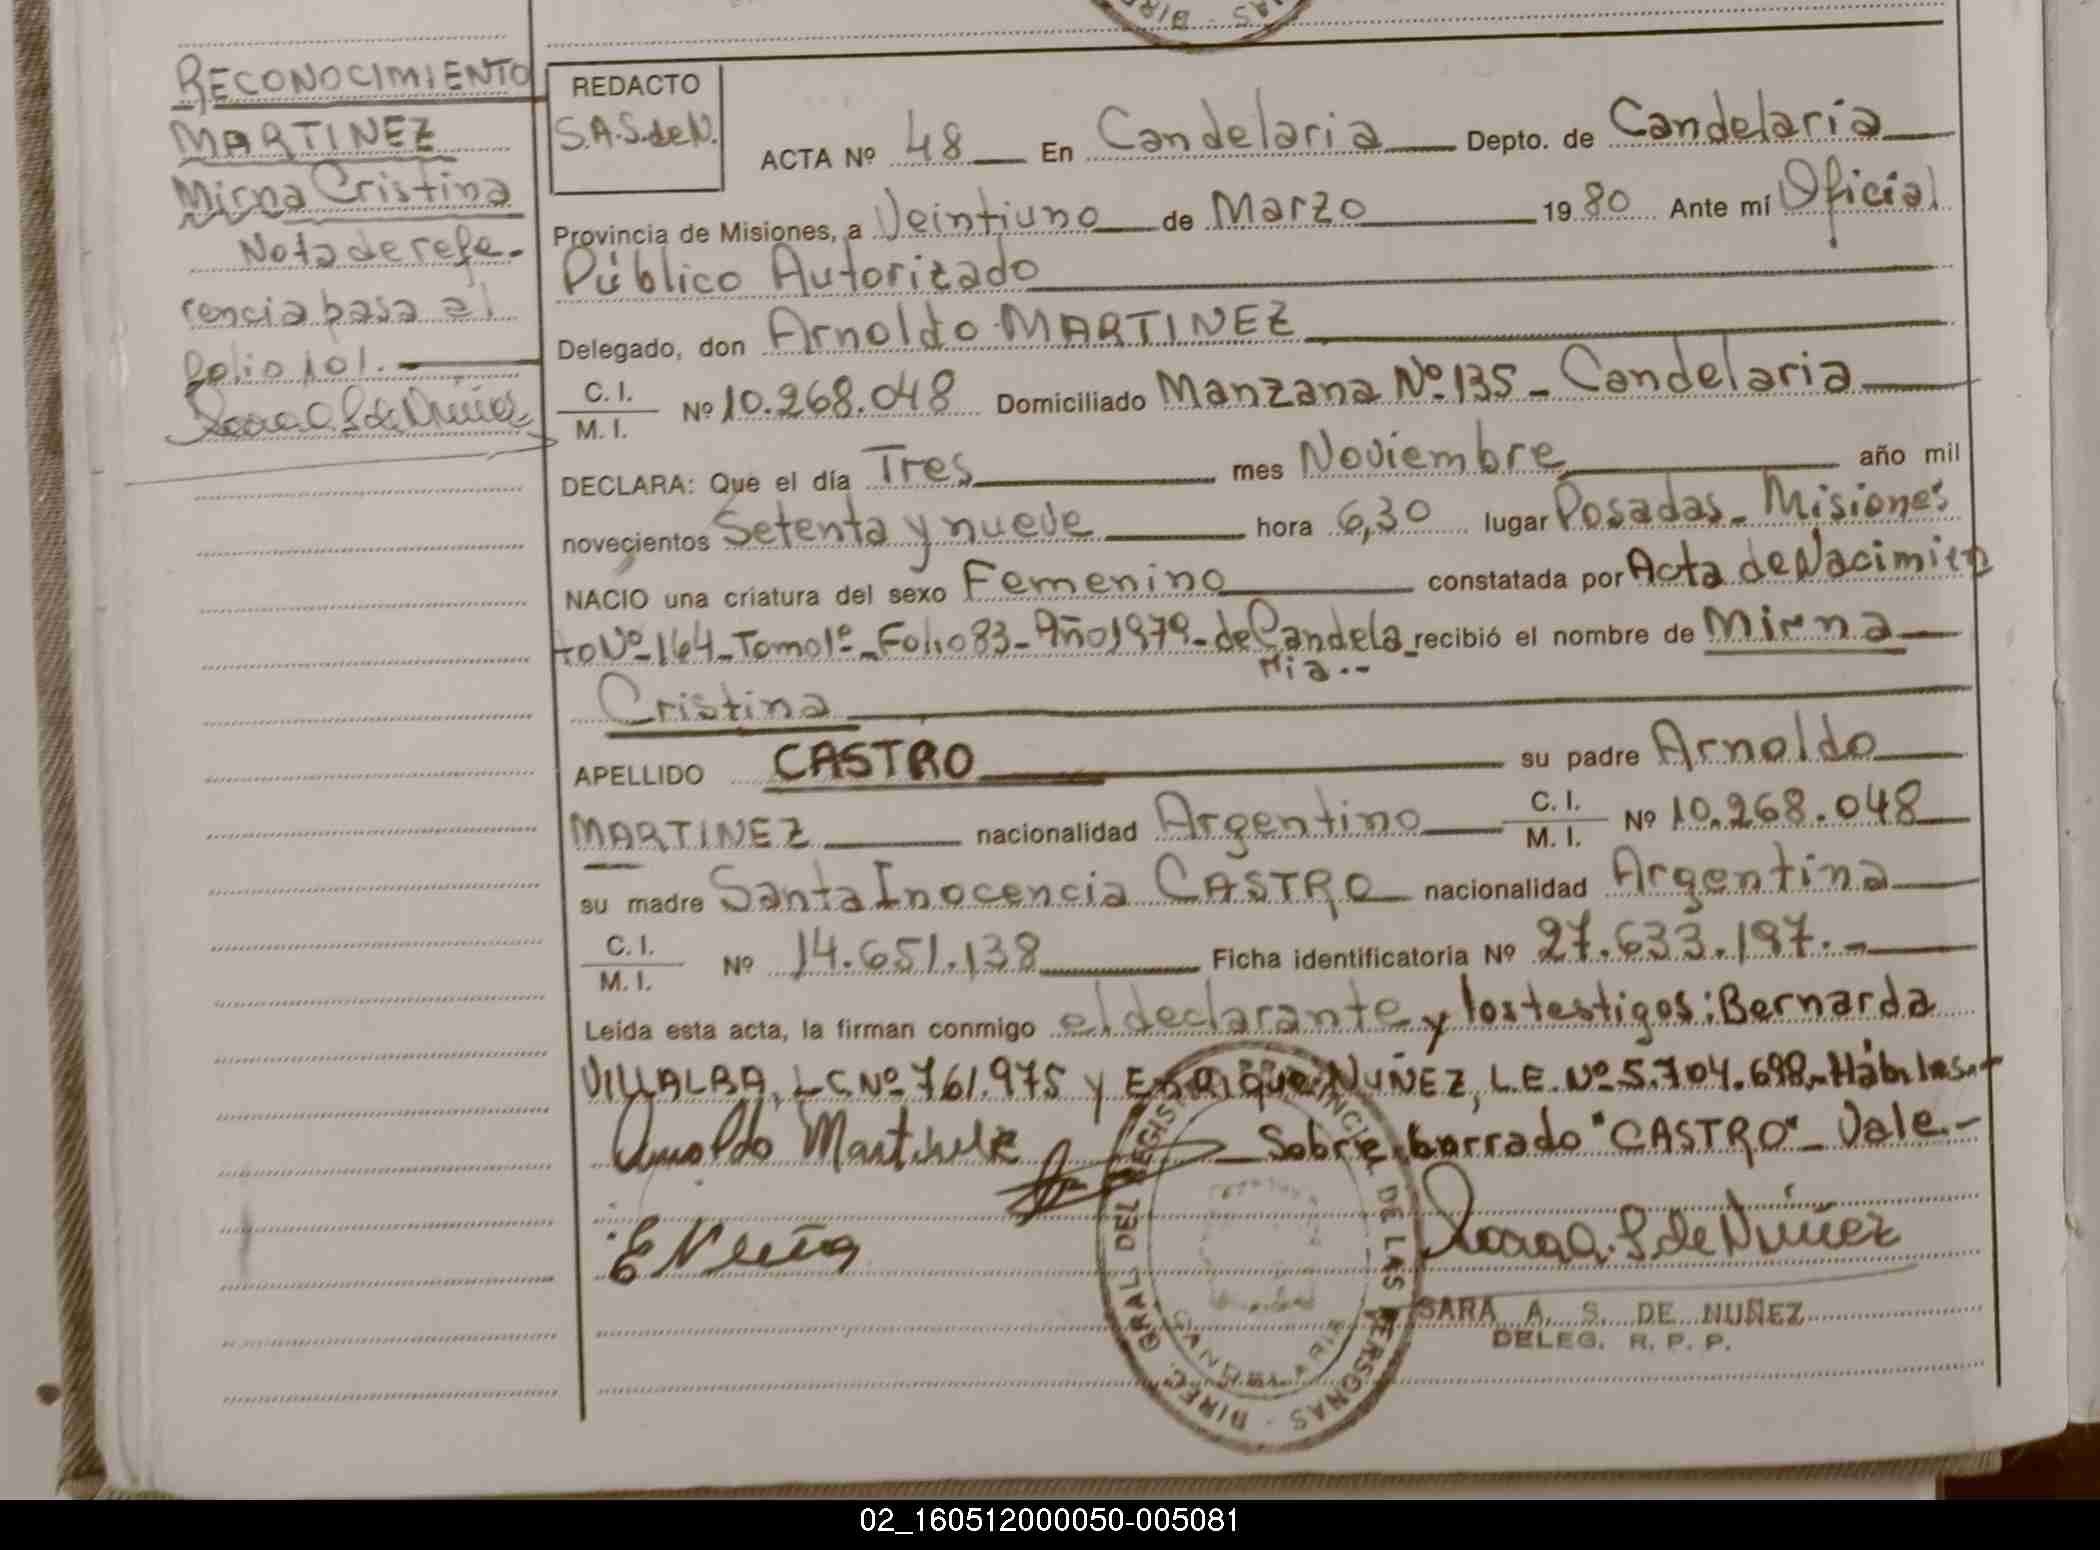 RECONOCIMIENTO
MARTINEZ
Mirna Cristina
Nota de refe-
rencia pasa al
Folio 101.
REDACTO
S.A.S. de N.
ACTA Nº 48 En Candelaria Depto. de Candelaria
Provincia de Misiones, a Veintiuno de Marzo 1980 Ante mí Oficial
Público Autorizado
Delegado, don Arnoldo MARTINEZ
C. I.
M. I.
Nº 10.268.048 Domiciliado Manzana Nº 135 - Candelaria
DECLARA: Que el día Tres mes Noviembre año mil
novecientos Setenta y nueve hora 6,30 lugar Posadas - Misiones
NACIO una criatura del sexo Femenino constatada por Acta de Nacimien
to Nº 164 - Tomo 1º - Folio 83 - Año 1979 - de Candela recibió el nombre de Mirna
ria.--
Cristina
APELLIDO CASTRO su padre Arnoldo
MARTINEZ nacionalidad Argentino C. I. M. I. Nº 10.268.048
su madre Santa Inocencia CASTRO nacionalidad Argentina
C. I.
M. I.
Nº 14.651.138 Ficha identificatoria Nº 27.633.197.-
Leída esta acta, la firman conmigo el declarante y los testigos: Bernarda
VILLALBA, L.C. Nº 761.975 y Enrique NUÑEZ, L.E. Nº 5.704.698.- Hábiles.-
Arnoldo Martinez - Sobre borrado "CASTRO" - Vale.-
DIREC. GRAL. DEL REGIST. PROVINCIAL DE LAS PERSONAS
CANDELARIA
SARA A. S. DE NUÑEZ
DELEG. R. P. P.
02_160512000050-005081